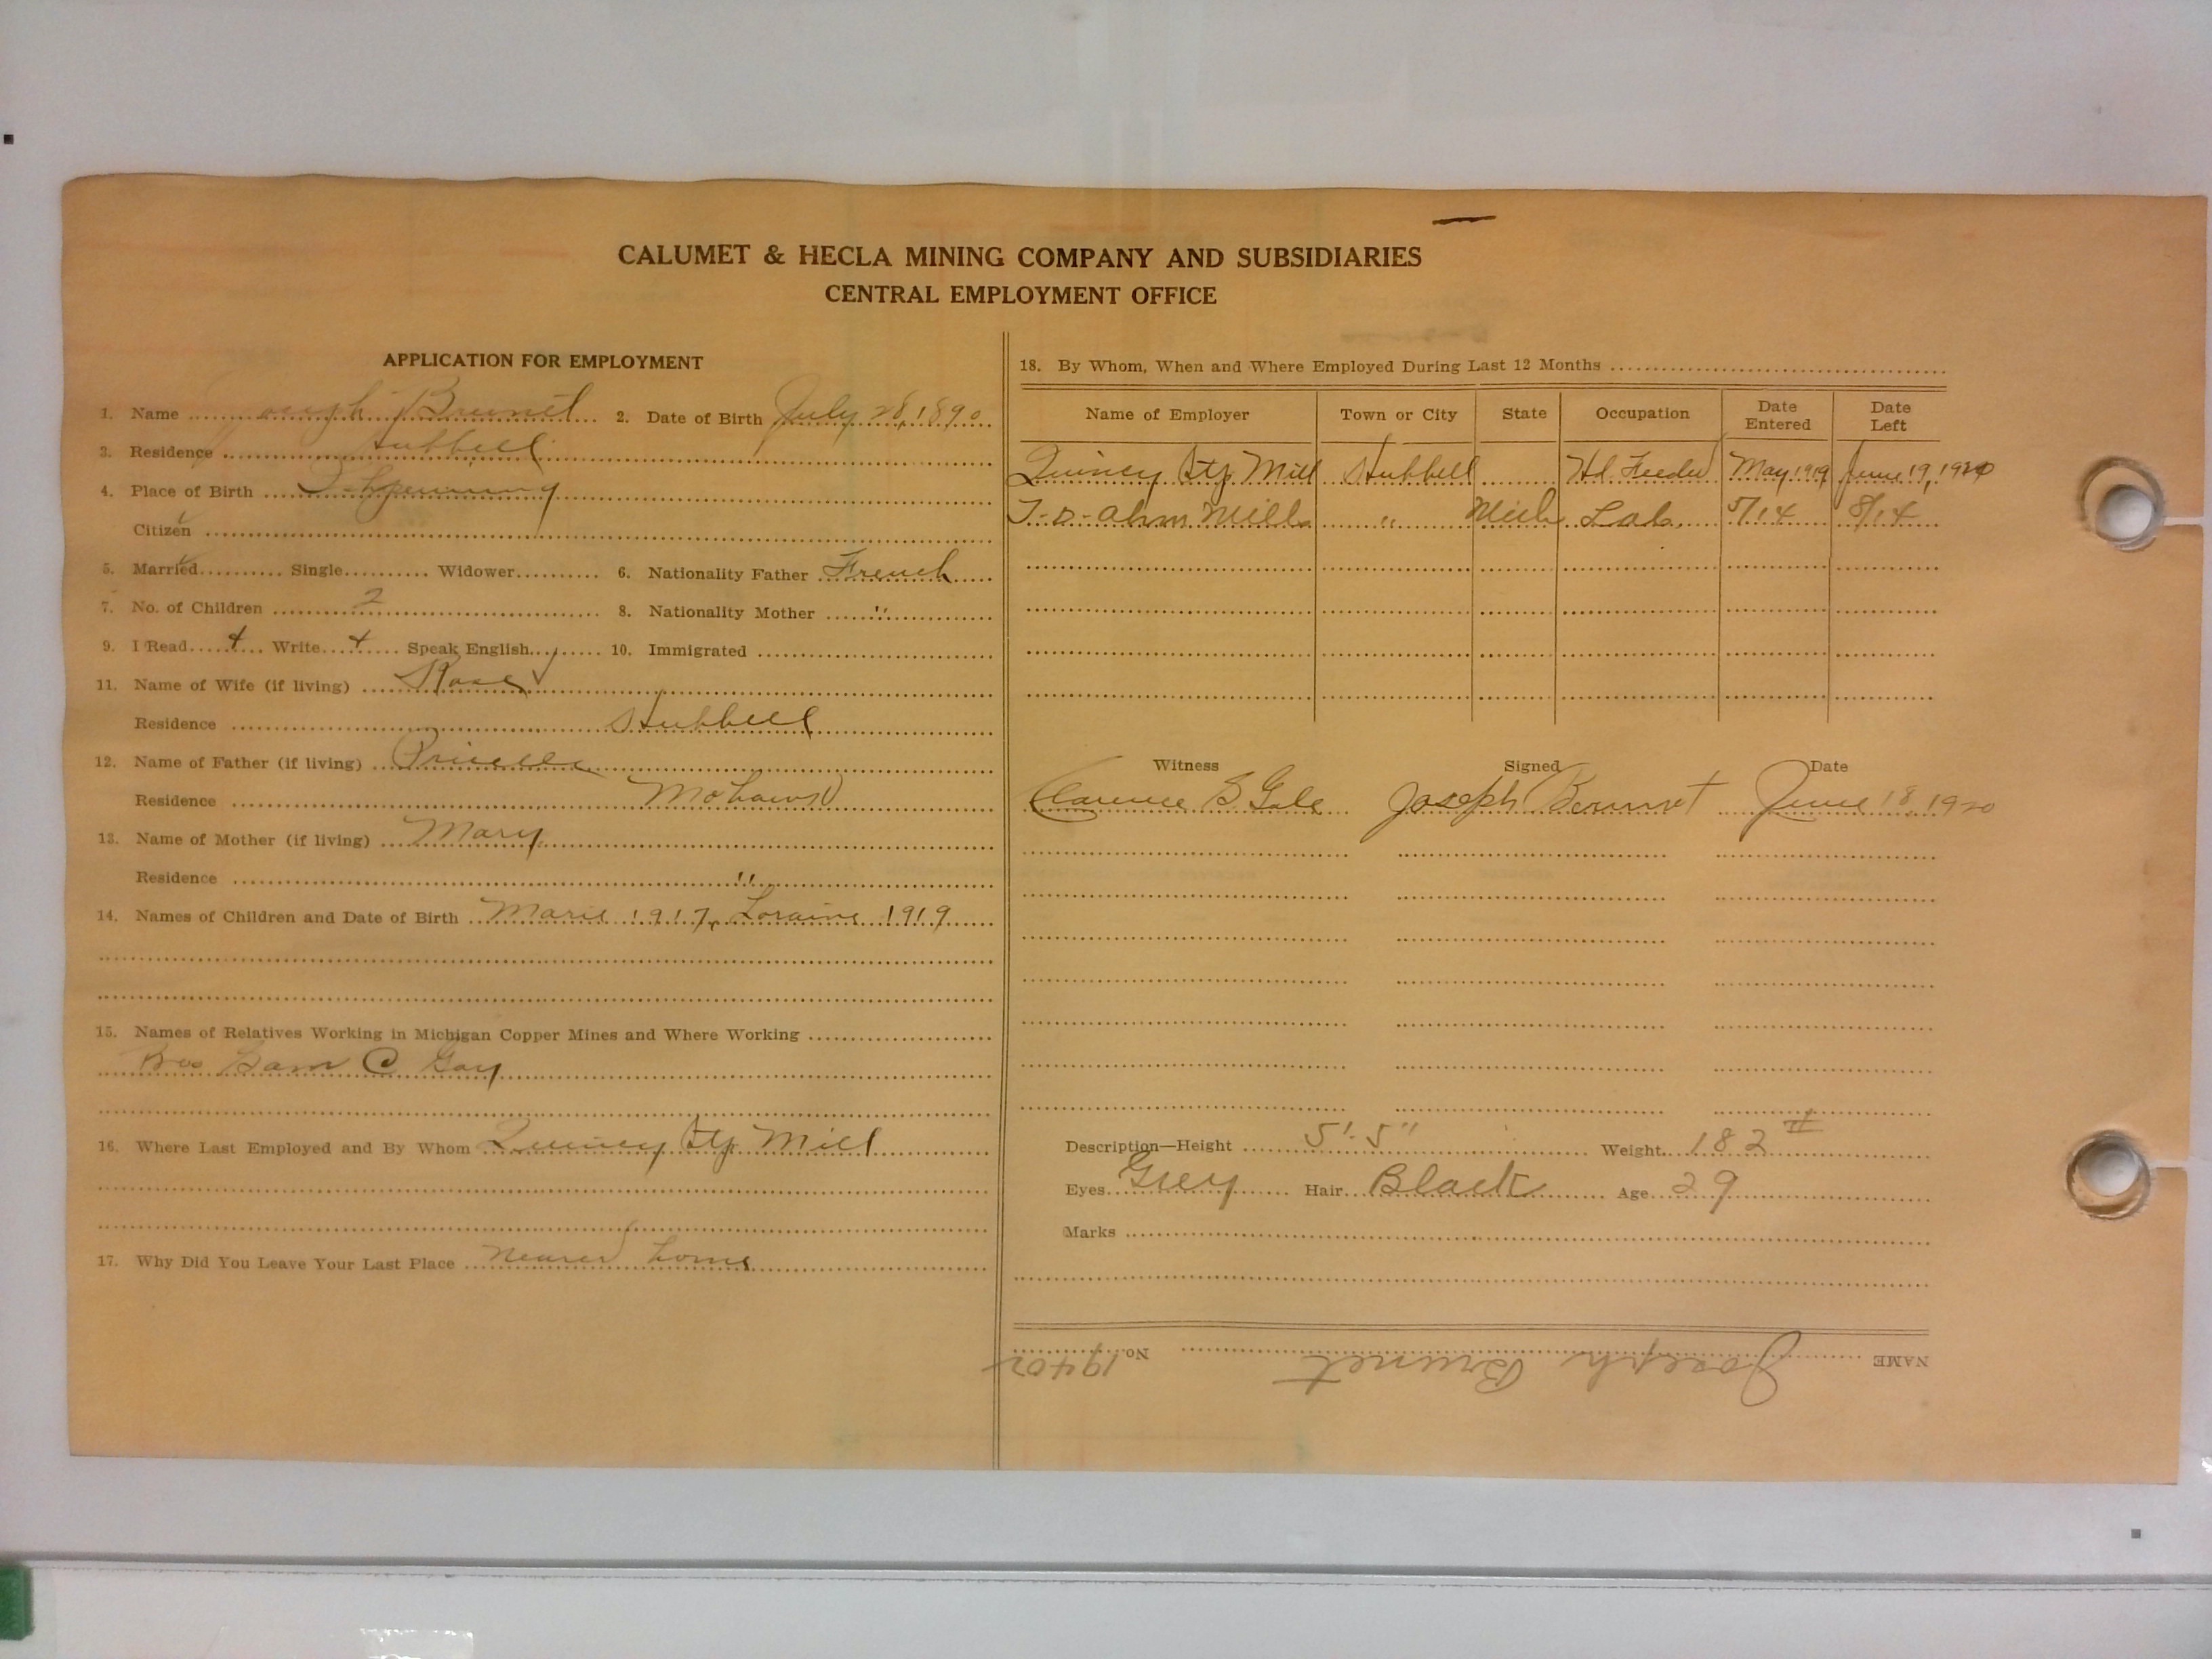 CALUMET & HECLA MINING COMPANY AND SUBSIDIARIES
CENTRAL EMPLOYMENT OFFICE
APPLICATION FOR EMPLOYMENT
1. Name Joseph Brunet 2. Date of Birth July 28, 1890
3. Residence Hubbell
4. Place of Birth Ishpeming
Citizen ✓
5. Married ✓ Single Widower 6. Nationality Father French
7. No. of Children 2 8. Nationality Mother "
9. I Read + Write + Speak English ✓ 10. Immigrated
11. Name of Wife (if living) Rose
Residence Hubbell
12. Name of Father (if living)
Residence Mohawk
13. Name of Mother (if living) Mary
Residence "
14. Names of Children and Date of Birth Marie 1917, Loraine 1919
15. Names of Relatives Working in Michigan Copper Mines and Where Working
Bro Sam C Gay
16. Where Last Employed and By Whom Quincy Stp Mill
17. Why Did You Leave Your Last Place nearer home
18. By Whom, When and Where Employed During Last 12 Months
Name of Employer Town or City State Occupation Date Entered Date Left
Quincy Stp Mill Hubbell Hd Feeder May 1919 June 19, 1920
Mills " Mich Lab. 5/14 8/14
Witness Signed Date
Clarence Gale Joseph Brunet June 18, 1920
Description—Height 5'-5" Weight 182 #
Eyes Grey Hair Black Age 29
Marks
NAME Joseph Brunet No. 19402